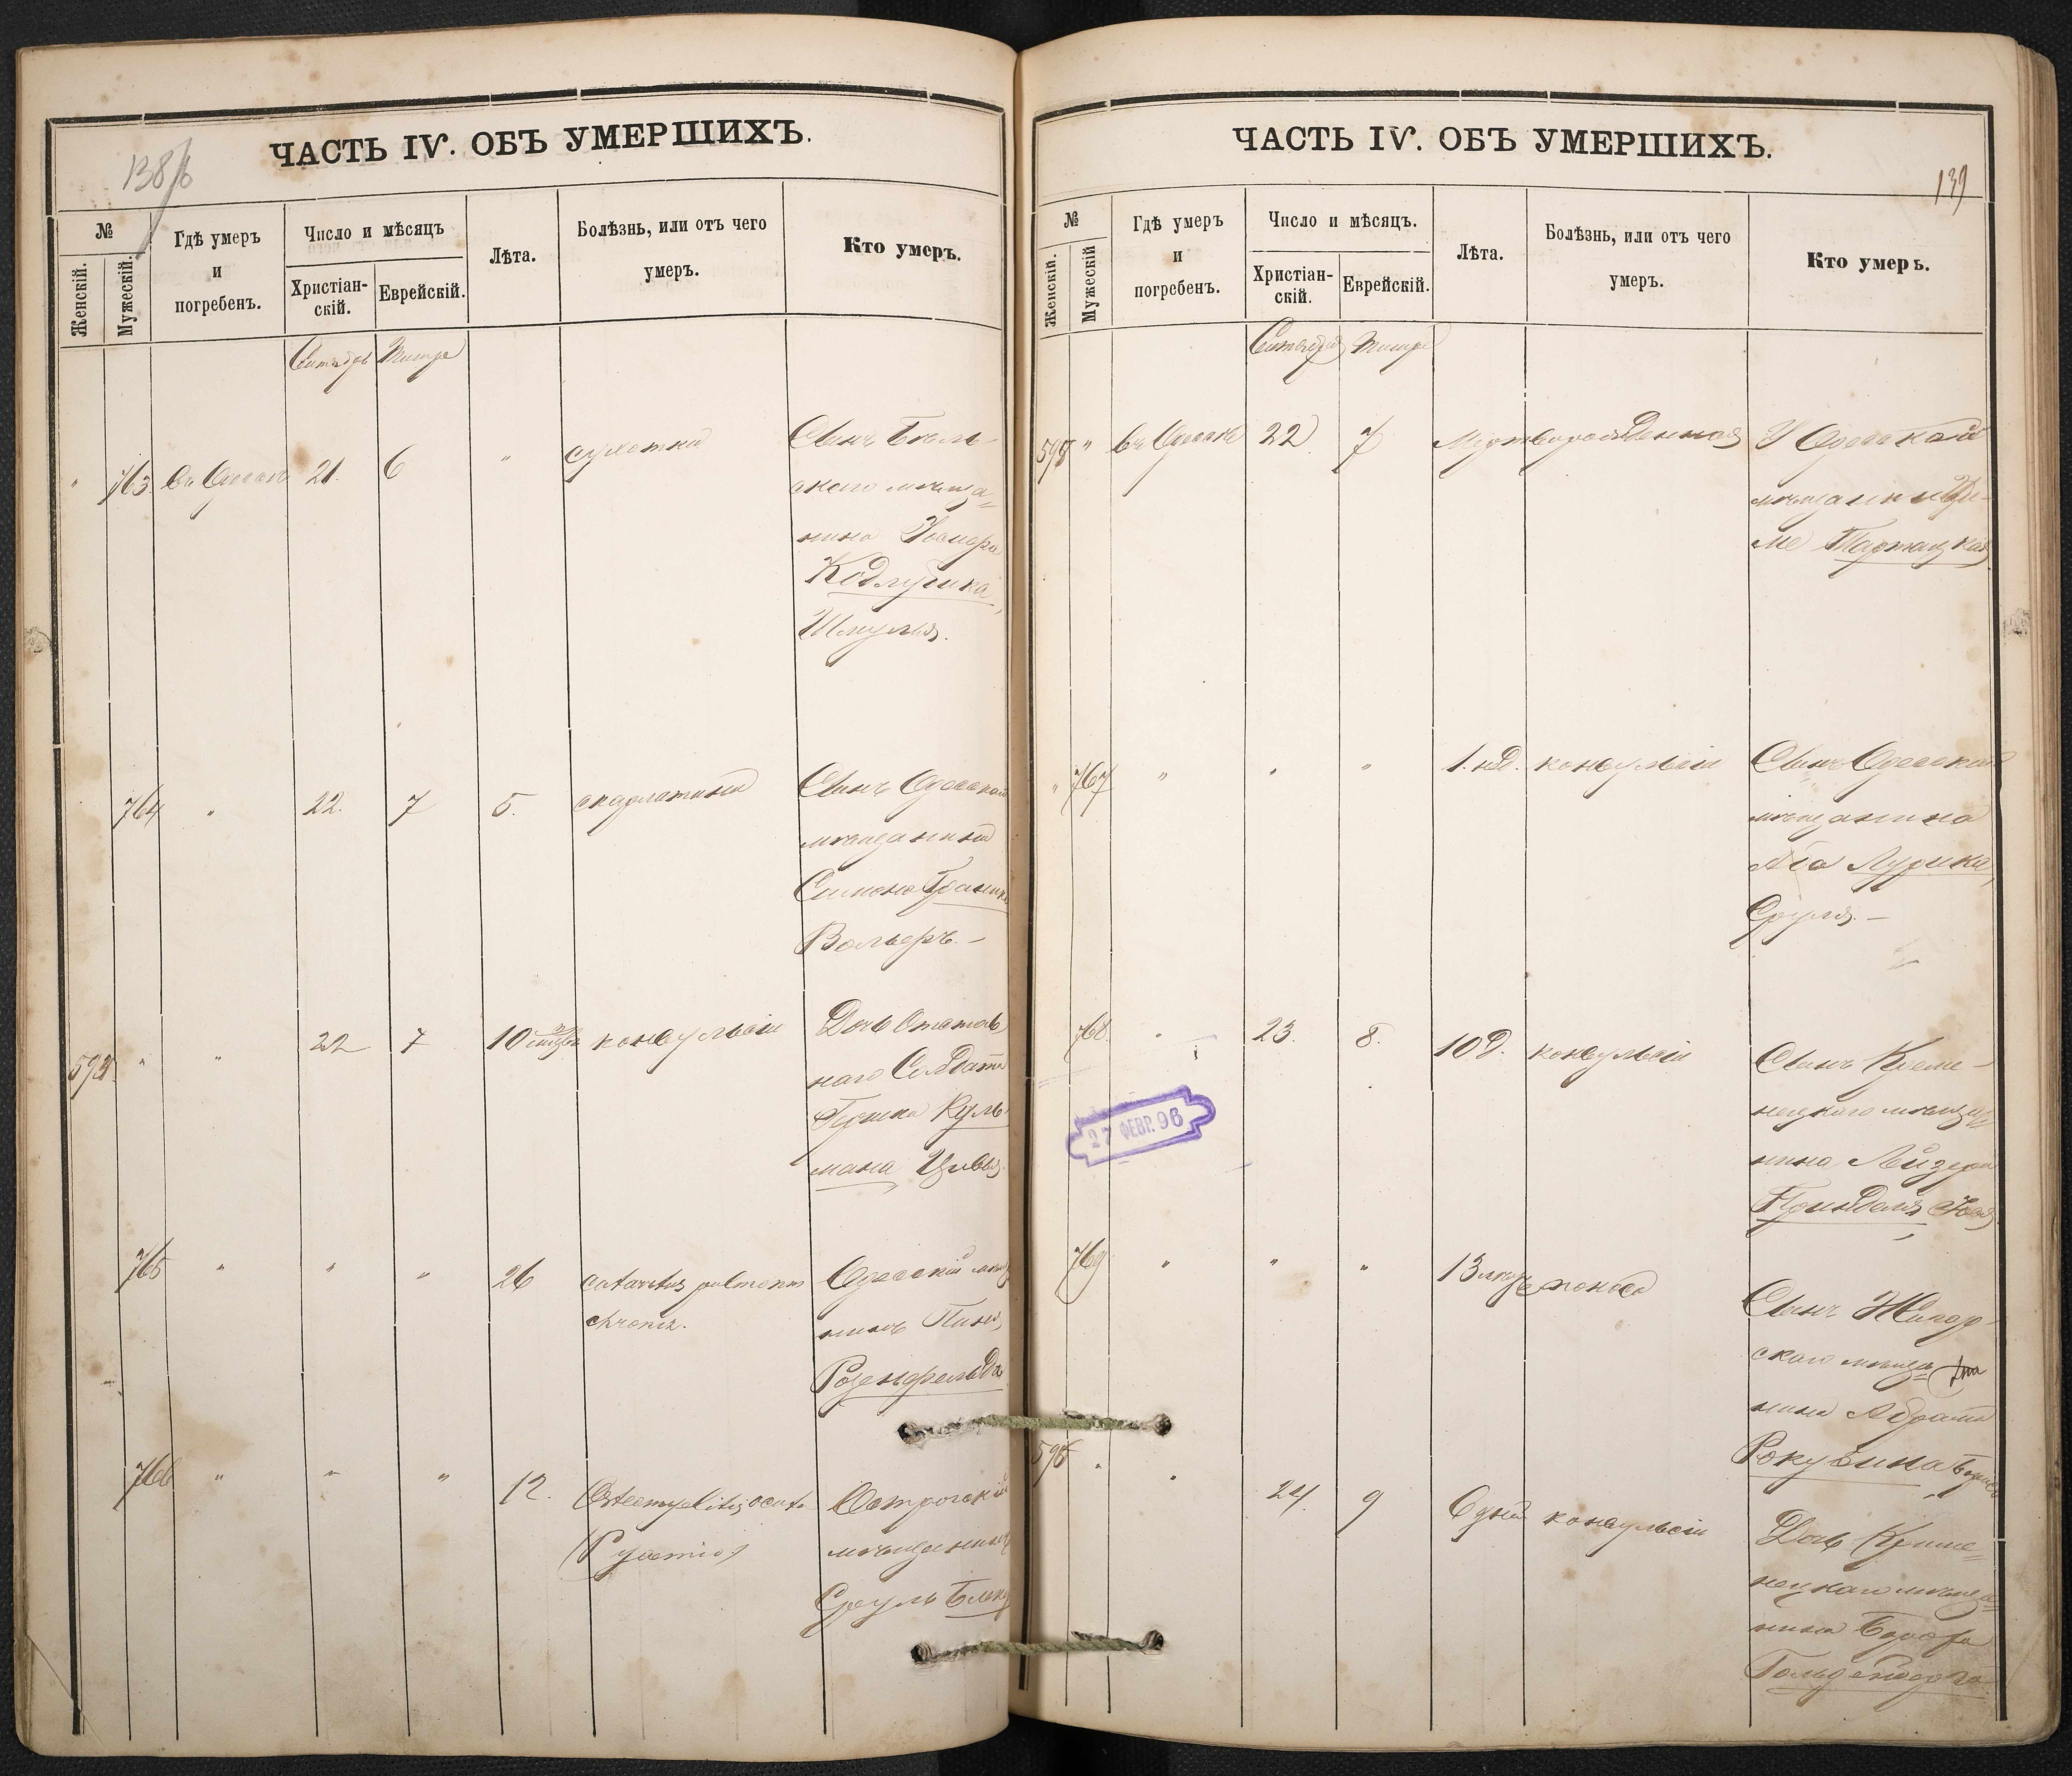 138/б
ЧАСТЬ IV. ОБЪ УМЕРШИХЪ.
№
Женскій.
Мужескій.
Гдѣ умеръ
и
погребенъ.
Число и мѣсяцъ
Христіан-
скій.
Еврейскій.
Лѣта.
Болѣзнь, или отъ чего
умеръ.
Кто умеръ.
Сентябрь Тишре
" 763. въ Одессѣ 21. 6 " сухотки Сынъ Бѣль-
скаго мѣща=
нина
Кодлубика,
Шмуль.
764 " 22. 7 5. скарлатина Сынъ Одесскаго
мѣщанина
Симона
Вольеръ. –
593. " " 22 7 10 конвульсіи Дочь Отстав
наго Солдата
Гершка Куль
мана Цивья
765 " " " 26 catarrhus pulmonum Одесскій мѣщ
chronix. нинъ Пинья
Розенфельдъ
766 " " " 12. Osteomyelitis acuta Острогскій
(Pyaemia) мѣщанинъ
Сруль
ЧАСТЬ IV. ОБЪ УМЕРШИХЪ.
139
№
Женскій.
Мужескій
Гдѣ умеръ
и
погребенъ.
Число и мѣсяцъ.
Христіан-
скій.
Еврейскій.
Лѣта.
Болѣзнь, или отъ чего
умеръ.
Кто умеръ.
Сентябрь Тишре
594 " въ Одессѣ 22 7 Мертворожденная У Одесской
мѣщанки
Тартацкая
" 767 " " " 1. нд. конвульсіи Сынъ Одесскаго
мѣщанина
Лурика,
Сруль. –
768. " 23. 8. 10 д. конвульсіи Сынъ Креме-
нецкаго мѣща=
нина Лейзера
27 ФЕВР. 96
769 " " " 13 мѣс поноса Сынъ
скаго мѣща=
нина Абрама
Рокузина
595 " " 24. 9 6 дней конвульсіи Дочь Креме=
нецкаго мѣща=
нина Бороха
Гольденберга